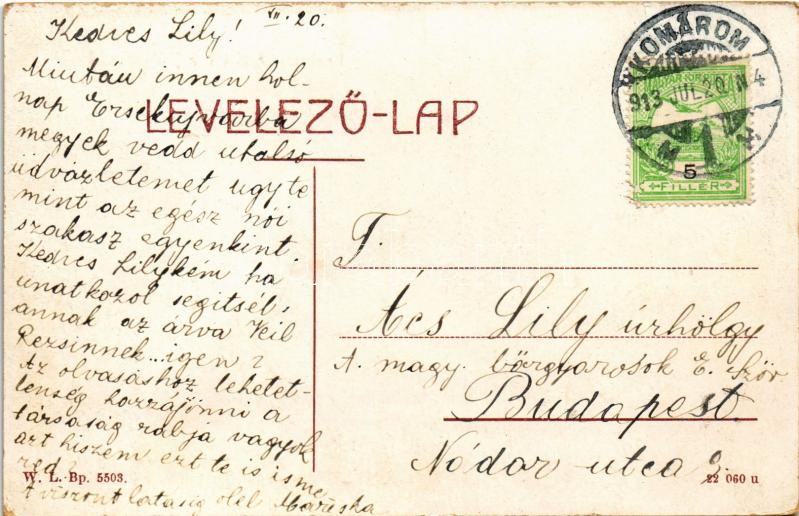 Kedves Lily! VII. 20.
Miután innen hol-
nap Érsekujvárba
megyek vedd utolsó
üdvözletemet ugy te
mint az egész női
szakasz egyenkint.
Kedves Lilykém ha
unatkozol segitsél
annak az árva Veil
Rezsinnek... igen?
Az olvasáshoz lehetet-
lenség hozzájönni a
társaság rabja vagyok
azt hiszem ezt te is isme-
red?
A viszontlátásig ölel Mariska
LEVELEZŐ-LAP
KOMÁROM
913 JUL 20 N4
MAGYAR KIR.
5
FILLÉR
T.
Ács Lily úrhölgy
A. magy. bőrgyárosok E. Ször
Budapest.
Nádor utca 9.
W. L. Bp. 5503.
22 060 u